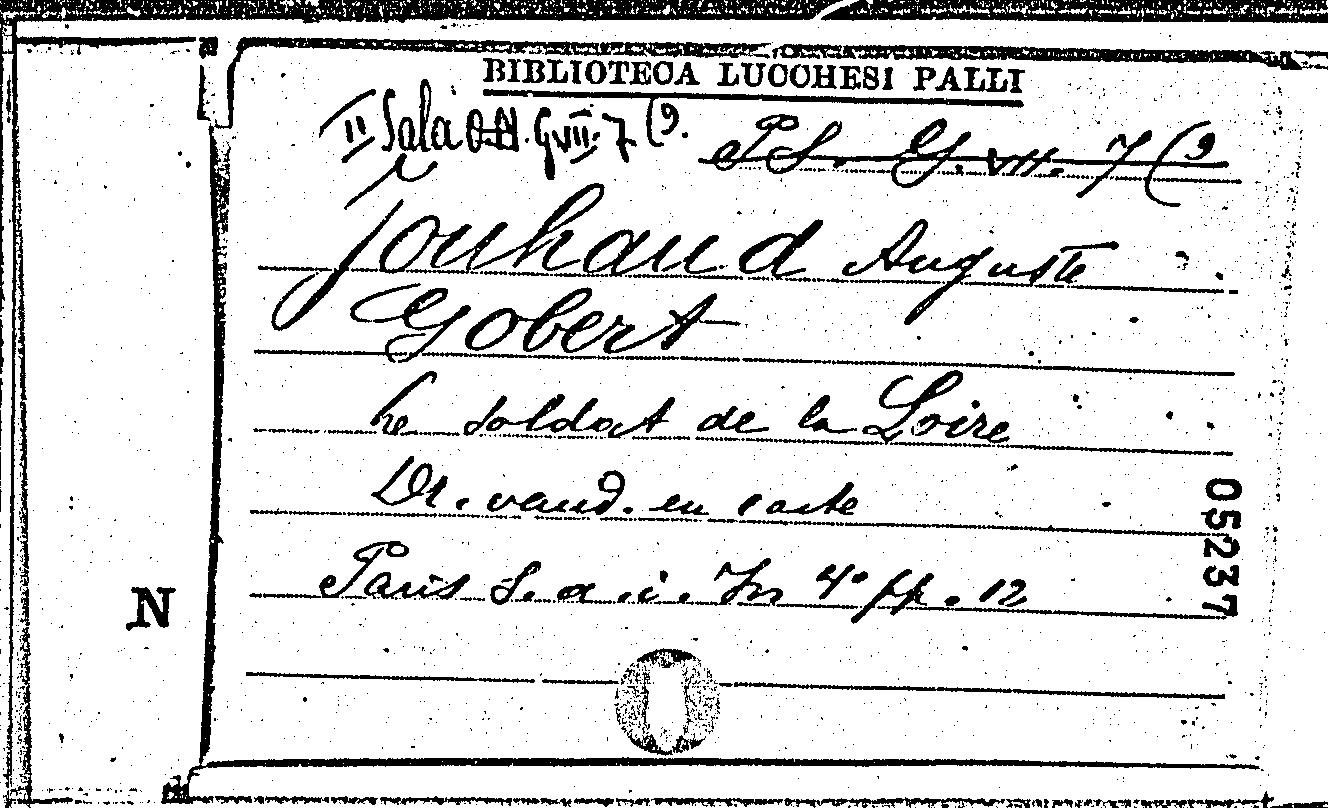 BIBLIOTECA LUCCHESI PALLI
II Sala G.VII. 7 (9.
P S. G. VII. 7 (9
Jouhaud Auguste
Gobert
Le soldat de la Loire
Dr. vaud. en 1 acte
Paris S. a. i. In 4° pp. 12
05237
N